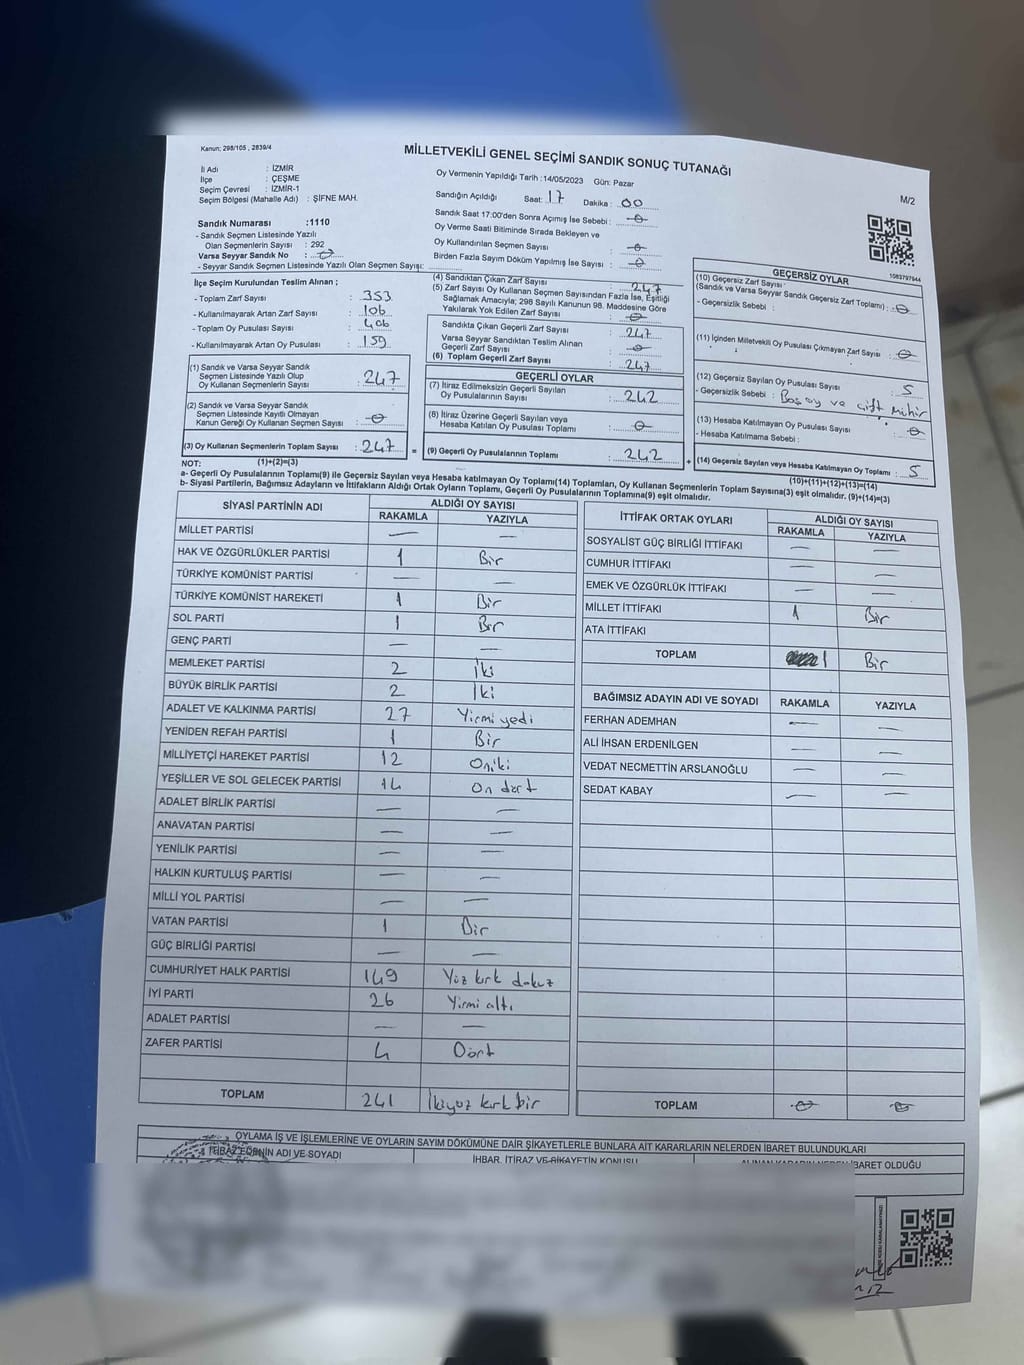 Kanun; 298/105 , 2839/4
MİLLETVEKİLİ GENEL SEÇİMİ SANDIK SONUÇ TUTANAĞI
M/2
İl Adı : İZMİR
İlçe : ÇEŞME
Seçim Çevresi : İZMİR-1
Seçim Bölgesi (Mahalle Adı) : ŞİFNE MAH.
Sandık Numarası :1110
- Sandık Seçmen Listesinde Yazılı
Olan Seçmenlerin Sayısı : 292
Varsa Seyyar Sandık No :
- Seyyar Sandık Seçmen Listesinde Yazılı Olan Seçmen Sayısı:
Oy Vermenin Yapıldığı Tarih :14/05/2023 Gün: Pazar
Sandığın Açıldığı Saat: 17 Dakika : 00
Sandık Saat 17:00'den Sonra Açımış İse Sebebi :
Oy Verme Saati Bitiminde Sırada Bekleyen ve
Oy Kullandırılan Seçmen Sayısı :
Birden Fazla Sayım Döküm Yapılmış İse Sayısı :
1083797944
İlçe Seçim Kurulundan Teslim Alınan ;
- Toplam Zarf Sayısı : 353
- Kullanılmayarak Artan Zarf Sayısı : 106
- Toplam Oy Pusulası Sayısı : 406
- Kullanılmayarak Artan Oy Pusulası : 159
(1) Sandık ve Varsa Seyyar Sandık
Seçmen Listesinde Yazılı Olup
Oy Kullanan Seçmenlerin Sayısı : 247
(2) Sandık ve Varsa Seyyar Sandık
Seçmen Listesinde Kayıtlı Olmayan
Kanun Gereği Oy Kullanan Seçmen Sayısı :
(3) Oy Kullanan Seçmenlerin Toplam Sayısı : 247
(4) Sandıktan Çıkan Zarf Sayısı : 247
(5) Zarf Sayısı Oy Kullanan Seçmen Sayısından Fazla İse, Eşitliği
Sağlamak Amacıyla; 298 Sayılı Kanunun 98. Maddesine Göre
Yakılarak Yok Edilen Zarf Sayısı :
Sandıkta Çıkan Geçerli Zarf Sayısı : 247
Varsa Seyyar Sandıktan Teslim Alınan
Geçerli Zarf Sayısı :
(6) Toplam Geçerli Zarf Sayısı : 247
GEÇERLİ OYLAR
(7) İtiraz Edilmeksizin Geçerli Sayılan
Oy Pusulasının Sayısı : 242
(8) İtiraz Üzerine Geçerli Sayılan veya
Hesaba Katılan Oy Pusulası Toplamı :
= (9) Geçerli Oy Pusulalarının Toplamı : 242 +
GEÇERSİZ OYLAR
(10) Geçersiz Zarf Sayısı
(Sandık ve Varsa Seyyar Sandık Geçersiz Zarf Toplamı) :
- Geçersizlik Sebebi :
(11) İçinden Milletvekili Oy Pusulası Çıkmayan Zarf Sayısı :
(12) Geçersiz Sayılan Oy Pusulası Sayısı : 5
- Geçersizlik Sebebi : Boş oy ve çift mühür
(13) Hesaba Katılmayan Oy Pusulası Sayısı :
- Hesaba Katılmama Sebebi :
(14) Geçersiz Sayılan veya Hesaba Katılmayan Oy Toplamı : 5
NOT: (1)+(2)=(3) (10)+(11)+(12)+(13)=(14)
a- Geçerli Oy Pusulalarının Toplamı(9) ile Geçersiz Sayılan veya Hesaba katılmayan Oy Toplamı(14) Toplamları, Oy Kullanan Seçmenlerin Toplam Sayısına(3) eşit olmalıdır. (9)+(14)=(3)
b- Siyasi Partilerin, Bağımsız Adayların ve İttifakların Aldığı Ortak Oyların Toplamı, Geçerli Oy Pusulalarının Toplamına(9) eşit olmalıdır.
SİYASİ PARTİNİN ADI ALDIĞI OY SAYISI
RAKAMLA YAZIYLA
MİLLET PARTİSİ — —
HAK VE ÖZGÜRLÜKLER PARTİSİ 1 Bir
TÜRKİYE KOMÜNİST PARTİSİ — —
TÜRKİYE KOMÜNİST HAREKETİ 1 Bir
SOL PARTİ 1 Bir
GENÇ PARTİ — —
MEMLEKET PARTİSİ 2 İki
BÜYÜK BİRLİK PARTİSİ 2 İki
ADALET VE KALKINMA PARTİSİ 27 Yirmi yedi
YENİDEN REFAH PARTİSİ 1 Bir
MİLLİYETÇİ HAREKET PARTİSİ 12 Oniki
YEŞİLLER VE SOL GELECEK PARTİSİ 14 On dört
ADALET BİRLİK PARTİSİ — —
ANAVATAN PARTİSİ — —
YENİLİK PARTİSİ — —
HALKIN KURTULUŞ PARTİSİ — —
MİLLİ YOL PARTİSİ — —
VATAN PARTİSİ 1 Bir
GÜÇ BİRLİĞİ PARTİSİ — —
CUMHURİYET HALK PARTİSİ 149 Yüz kırk dokuz
İYİ PARTİ 26 Yirmi altı
ADALET PARTİSİ — —
ZAFER PARTİSİ 4 Dört
TOPLAM 241 İkiyüz kırk bir
İTTİFAK ORTAK OYLARI ALDIĞI OY SAYISI
RAKAMLA YAZIYLA
SOSYALİST GÜÇ BİRLİĞİ İTTİFAKI — —
CUMHUR İTTİFAKI — —
EMEK VE ÖZGÜRLÜK İTTİFAKI — —
MİLLET İTTİFAKI 1 Bir
ATA İTTİFAKI
TOPLAM 1 Bir
BAĞIMSIZ ADAYIN ADI VE SOYADI RAKAMLA YAZIYLA
FERHAN ADEMHAN — —
ALİ İHSAN ERDENİLGEN — —
VEDAT NECMETTİN ARSLANOĞLU — —
SEDAT KABAY — —
TOPLAM
OYLAMA İŞ VE İŞLEMLERİNE VE OYLARIN SAYIM DÖKÜMÜNE DAİR ŞİKAYETLERLE BUNLARA AİT KARARLARIN NELERDEN İBARET BULUNDUKLARI
İTİRAZ EDENİN ADI VE SOYADI İHBAR, İTİRAZ VE ŞİKAYETİN KONUSU ALINAN KARARIN NEDEN İBARET OLDUĞU